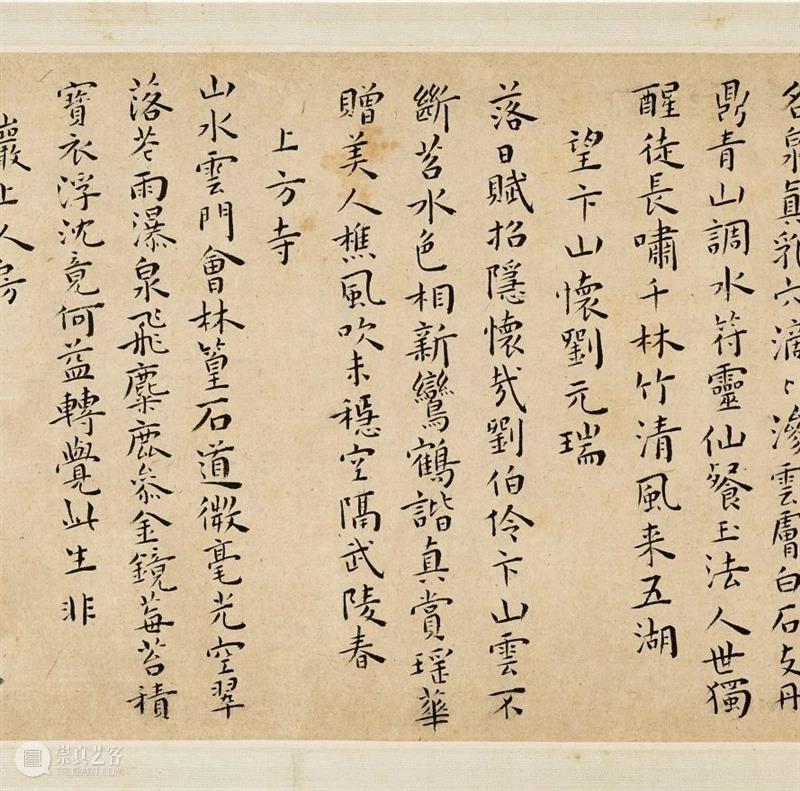 名泉真乳穴滴〻滲雲膚白石支丹
鼎青山調水符靈仙餐玉法人世獨
醒徒長嘯千林竹清風来五湖
望卞山懷劉元瑞
落日賦招隱懷哉劉伯伶卞山雲不
斷苕水色相新鸞鶴諧真賞瑶華
贈美人樵風吹未穩空隔武陵春
上方寺
山水雲門會林篁石道微毫光空翠
落芲雨瀑泉飛麋鹿叅金鏡莓苔積
寶衣浮沈竟何益轉覺此生非
巖上人房
崇真艺客
TRUEART.COM